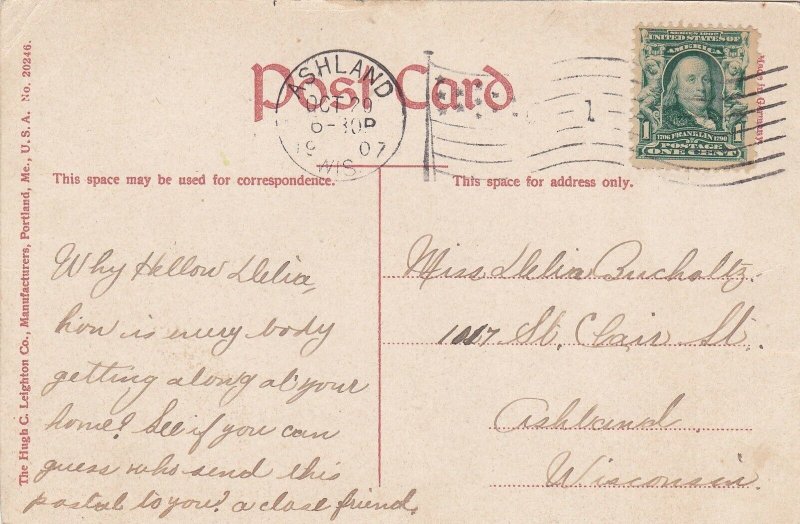 Post Card
ASHLAND
OCT 29
6-30P
19 07
WIS.
1
SERIES 1902
UNITED STATES OF
AMERICA
1706 FRANKLIN 1790
1 1
POSTAGE
ONE CENT
Made in Germany.
The Hugh C. Leighton Co., Manufacturers, Portland, Me., U. S. A. No. 20246.
This space may be used for correspondence.
This space for address only.
Why Hellow Delia,
how is every body
getting along at your
home? See if you can
guess who send this
postal to you? a close friend.
Miss Delia Bucholtz.
1007 St. Clair St.
Ashland
Wisconsin.